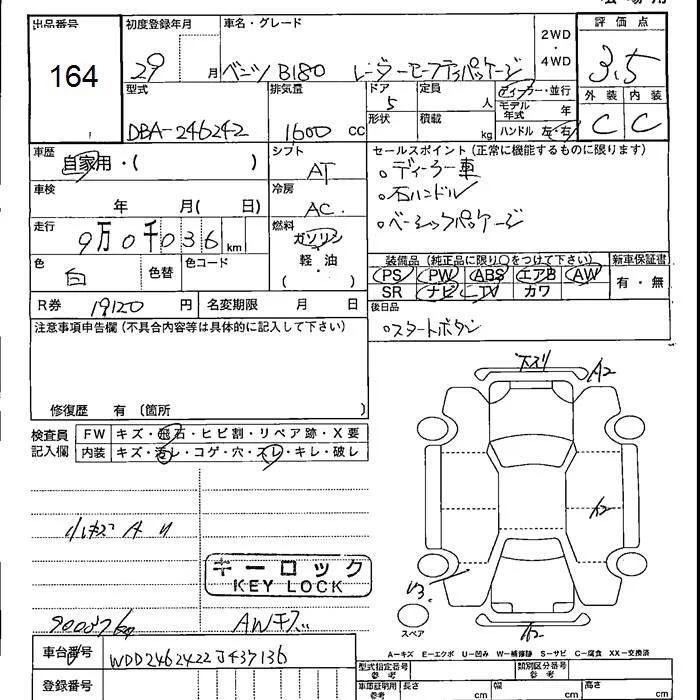 出品番号 初度登録年月 車名・グレード 評価点
164 29 月 ベンツ B180 レーダーセーフティパッケージ 2WD・4WD 3.5
型式 排気量 ドア 定員 ディーラー・並行 外装 内装
DBA-246242 1600 CC 5 人 モデル年式 年 C C
形状 積載 kg ハンドル 左・右
車歴 シフト セールスポイント(正常に機能するものに限ります)
自家用・( ) AT 。ディーラー車
車検 冷房 。右ハンドル
年 月( 日) AC 。ベーシックパッケージ
走行 燃料
9万0千036 km ガソリン 軽・油 ( )
装備品(純正品に限り○をつけて下さい) 新車保証書
色 白 色替 色コード PS PW ABS エアB AW 有・無
SR ナビ TV カワ
R券 19120 円 名変期限 月 日 後日品
注意事項申告欄(不具合内容等は具体的に記入して下さい) 。スタートボタン
下スリ A2
修復歴 有(箇所 )
検査員記入欄 FW キズ・飛石・ヒビ割・リペア跡・X要
内装 キズ・汚レ・コゲ・穴・スレ・キレ・破レ
小キズ A リ A2
キーロック
KEY LOCK
U3
90037kg AWキズ スペア A2
A−キズ E−エクボ U−凹み W−補修跡 S−サビ C−腐食 XX−交換済
車台番号 WDD2462422J437136 型式指定番号 参考 類別区分番号 参考
登録番号 車庫証明用 参考 長さ cm 幅 cm 高さ cm